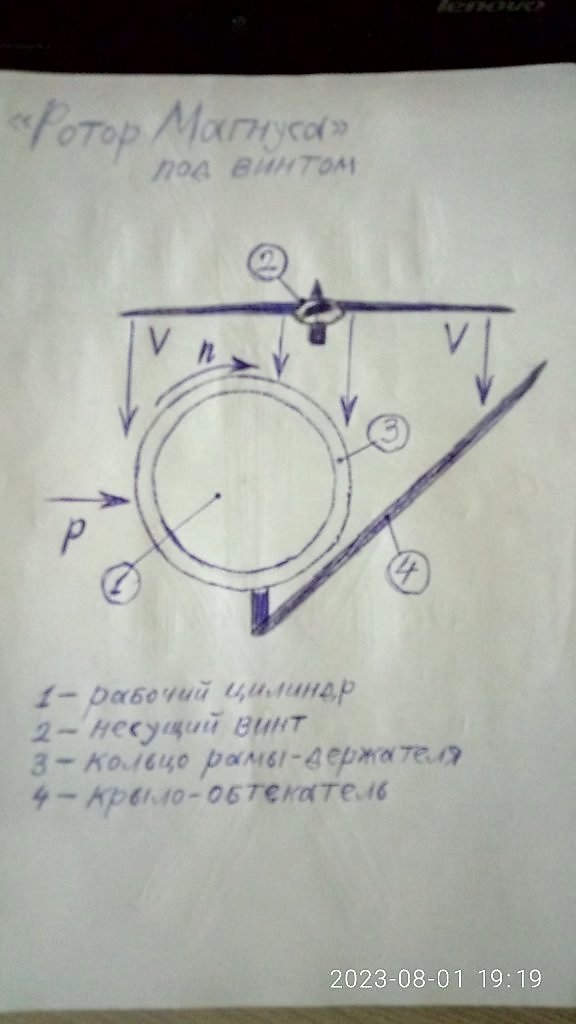 «Ротор Магнуса»
под винтом
2
V
n
V
3
P
1
4
1 – рабочий цилиндр
2 – несущий винт
3 – кольцо рамы-держателя
4 – крыло-обтекатель
2023-08-01 19:19